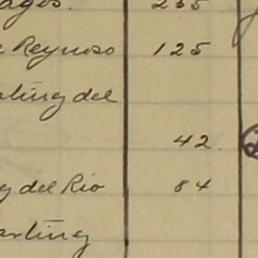 ages. 255
Reynoso 125
rting del
42
g del Rio 84
arting